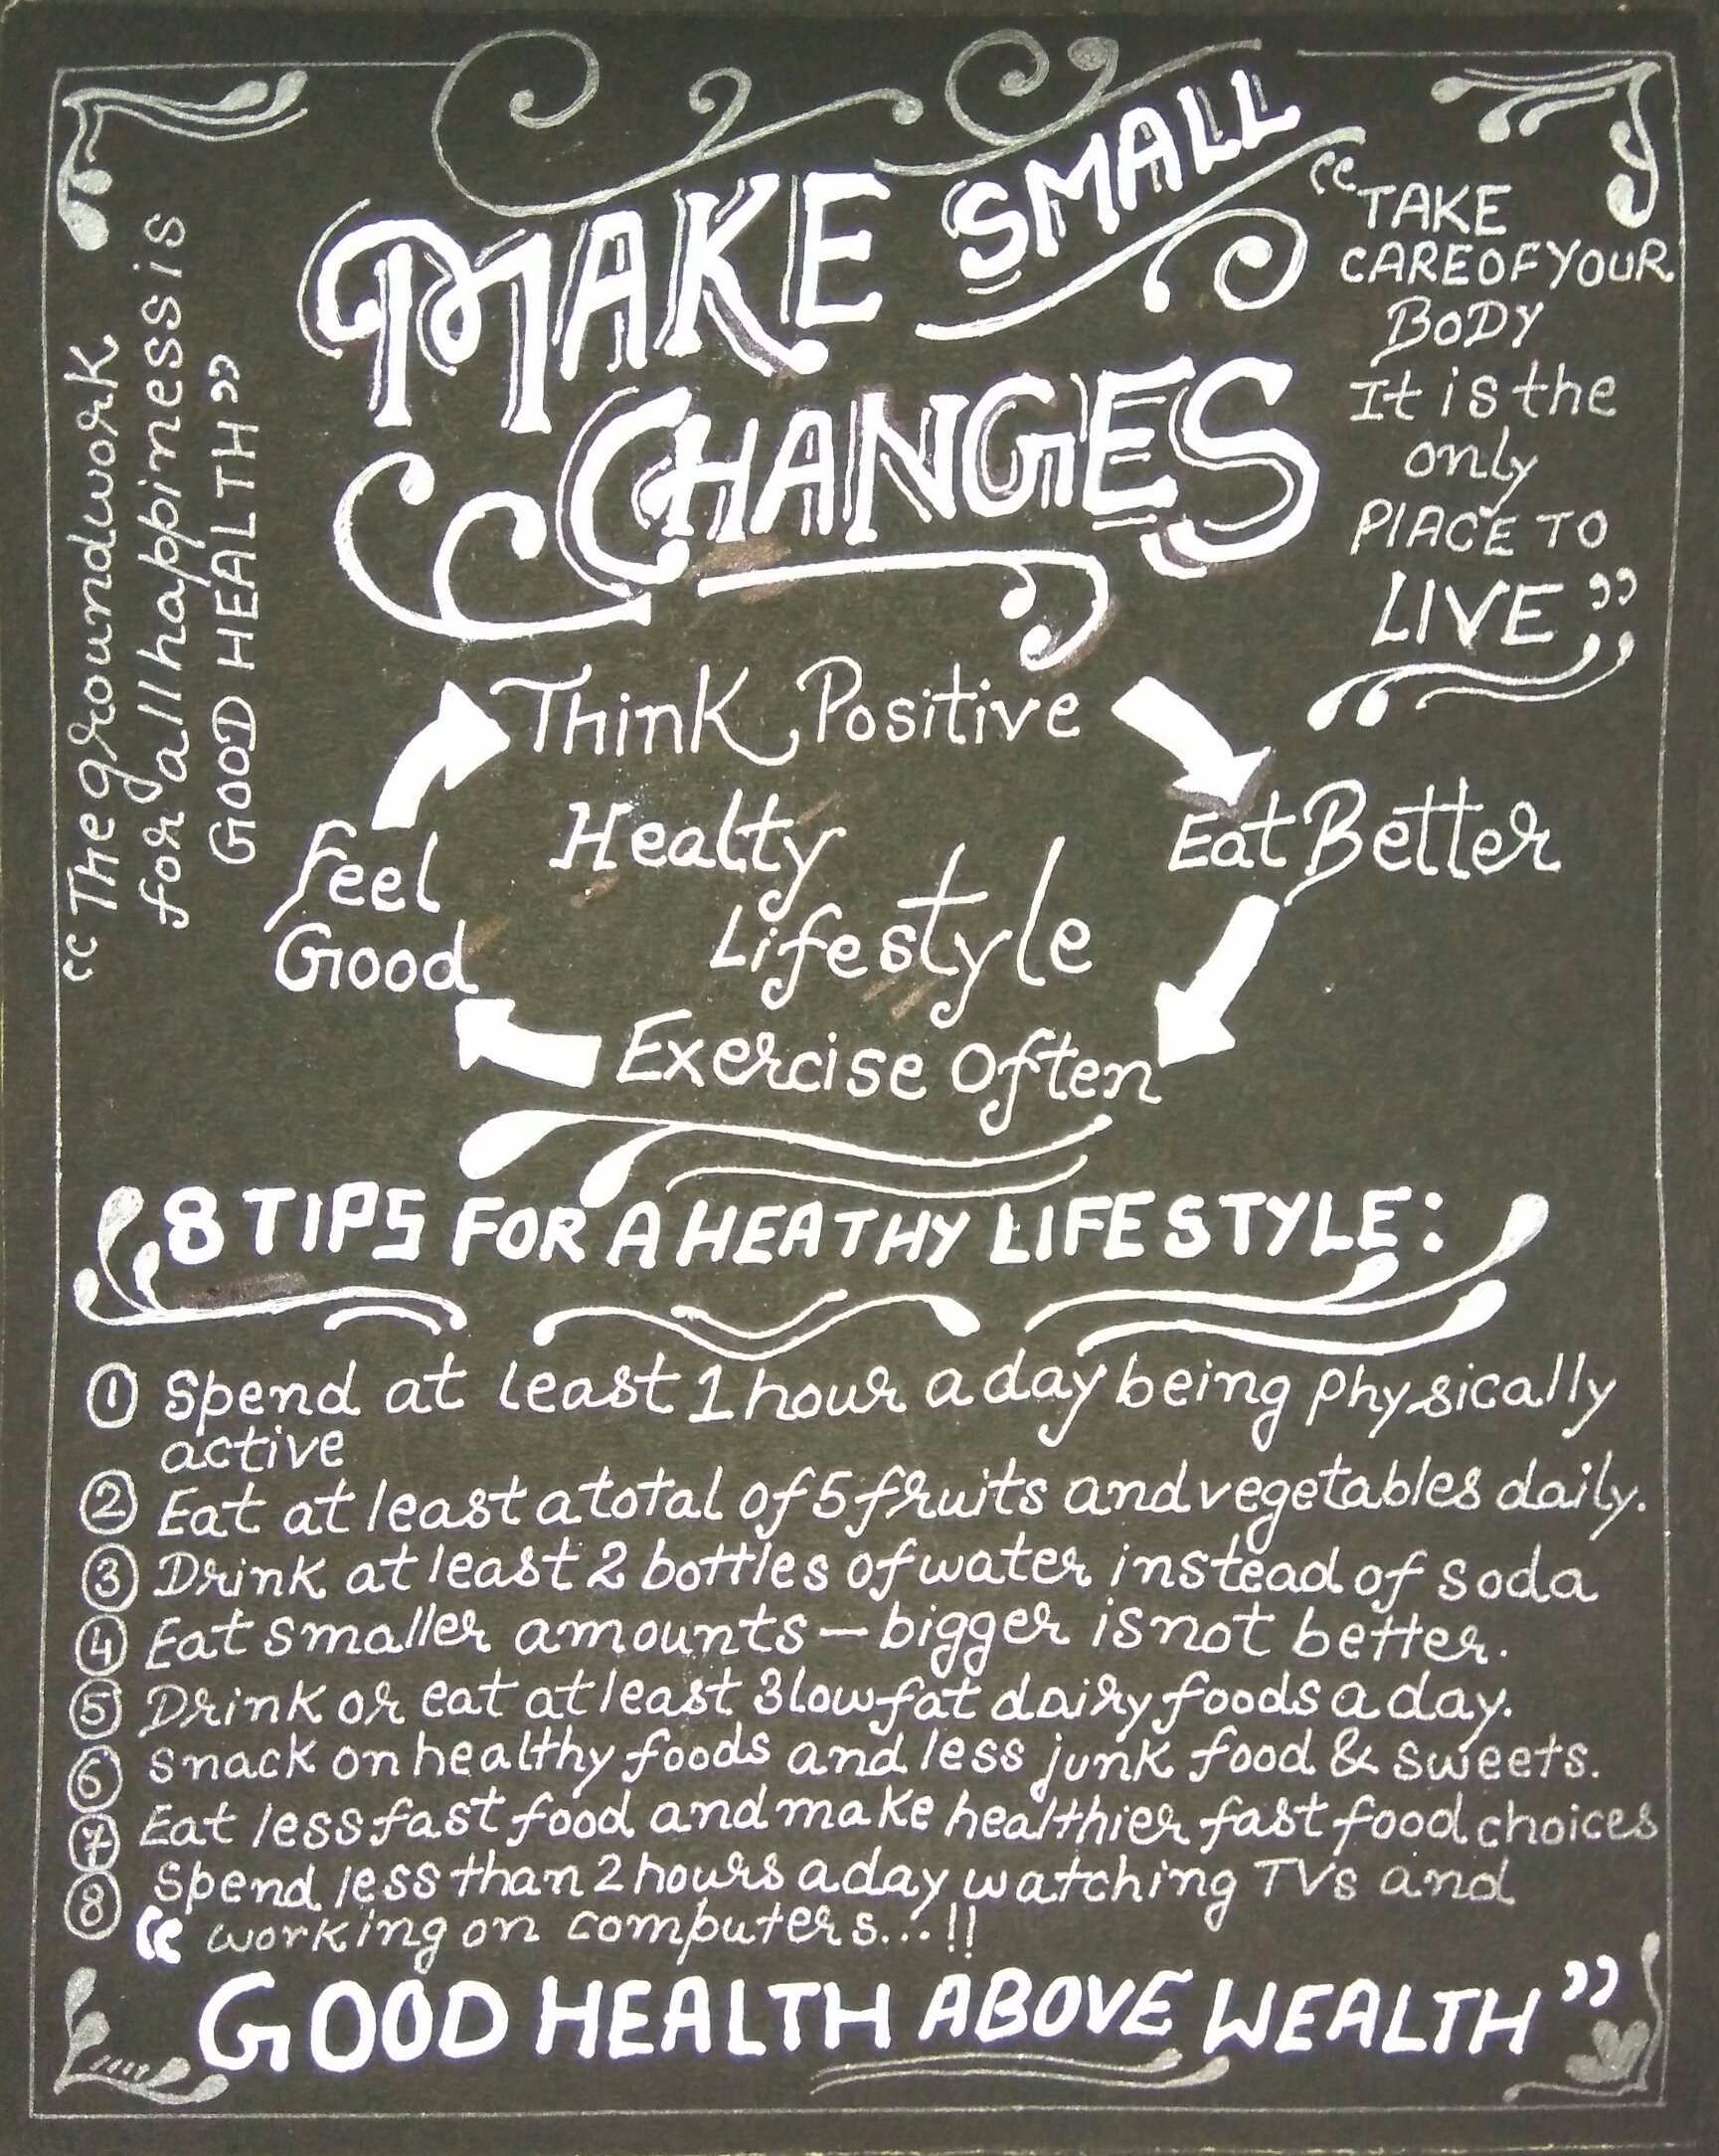 MAKE SMALL
CHANGES
"TAKE
CARE OF YOUR
BODY
It is the
only
PlACE TO
LIVE"
"The groundwork
for all happiness is
GOOD HEALTH"
Think Positive
Eat Better
Exercise Often
Feel
Good
Healty
Lifestyle
8 TIPS FOR A HEATHY LIFESTYLE:
1 Spend at least 1 hour a day being physically
active
2 Eat at least a total of 5 fruits and vegetables daily.
3 Drink at least 2 bottles of water instead of soda
4 Eat smaller amounts – bigger is not better.
5 Drink or eat at least 3 low fat dairy foods a day.
6 snack on healthy foods and less junk food & sweets.
7 Eat less fast food and make healthier fast food choices
8 Spend less than 2 hours a day watching TVs and
working on computers...!!
"GOOD HEALTH ABOVE WEALTH"